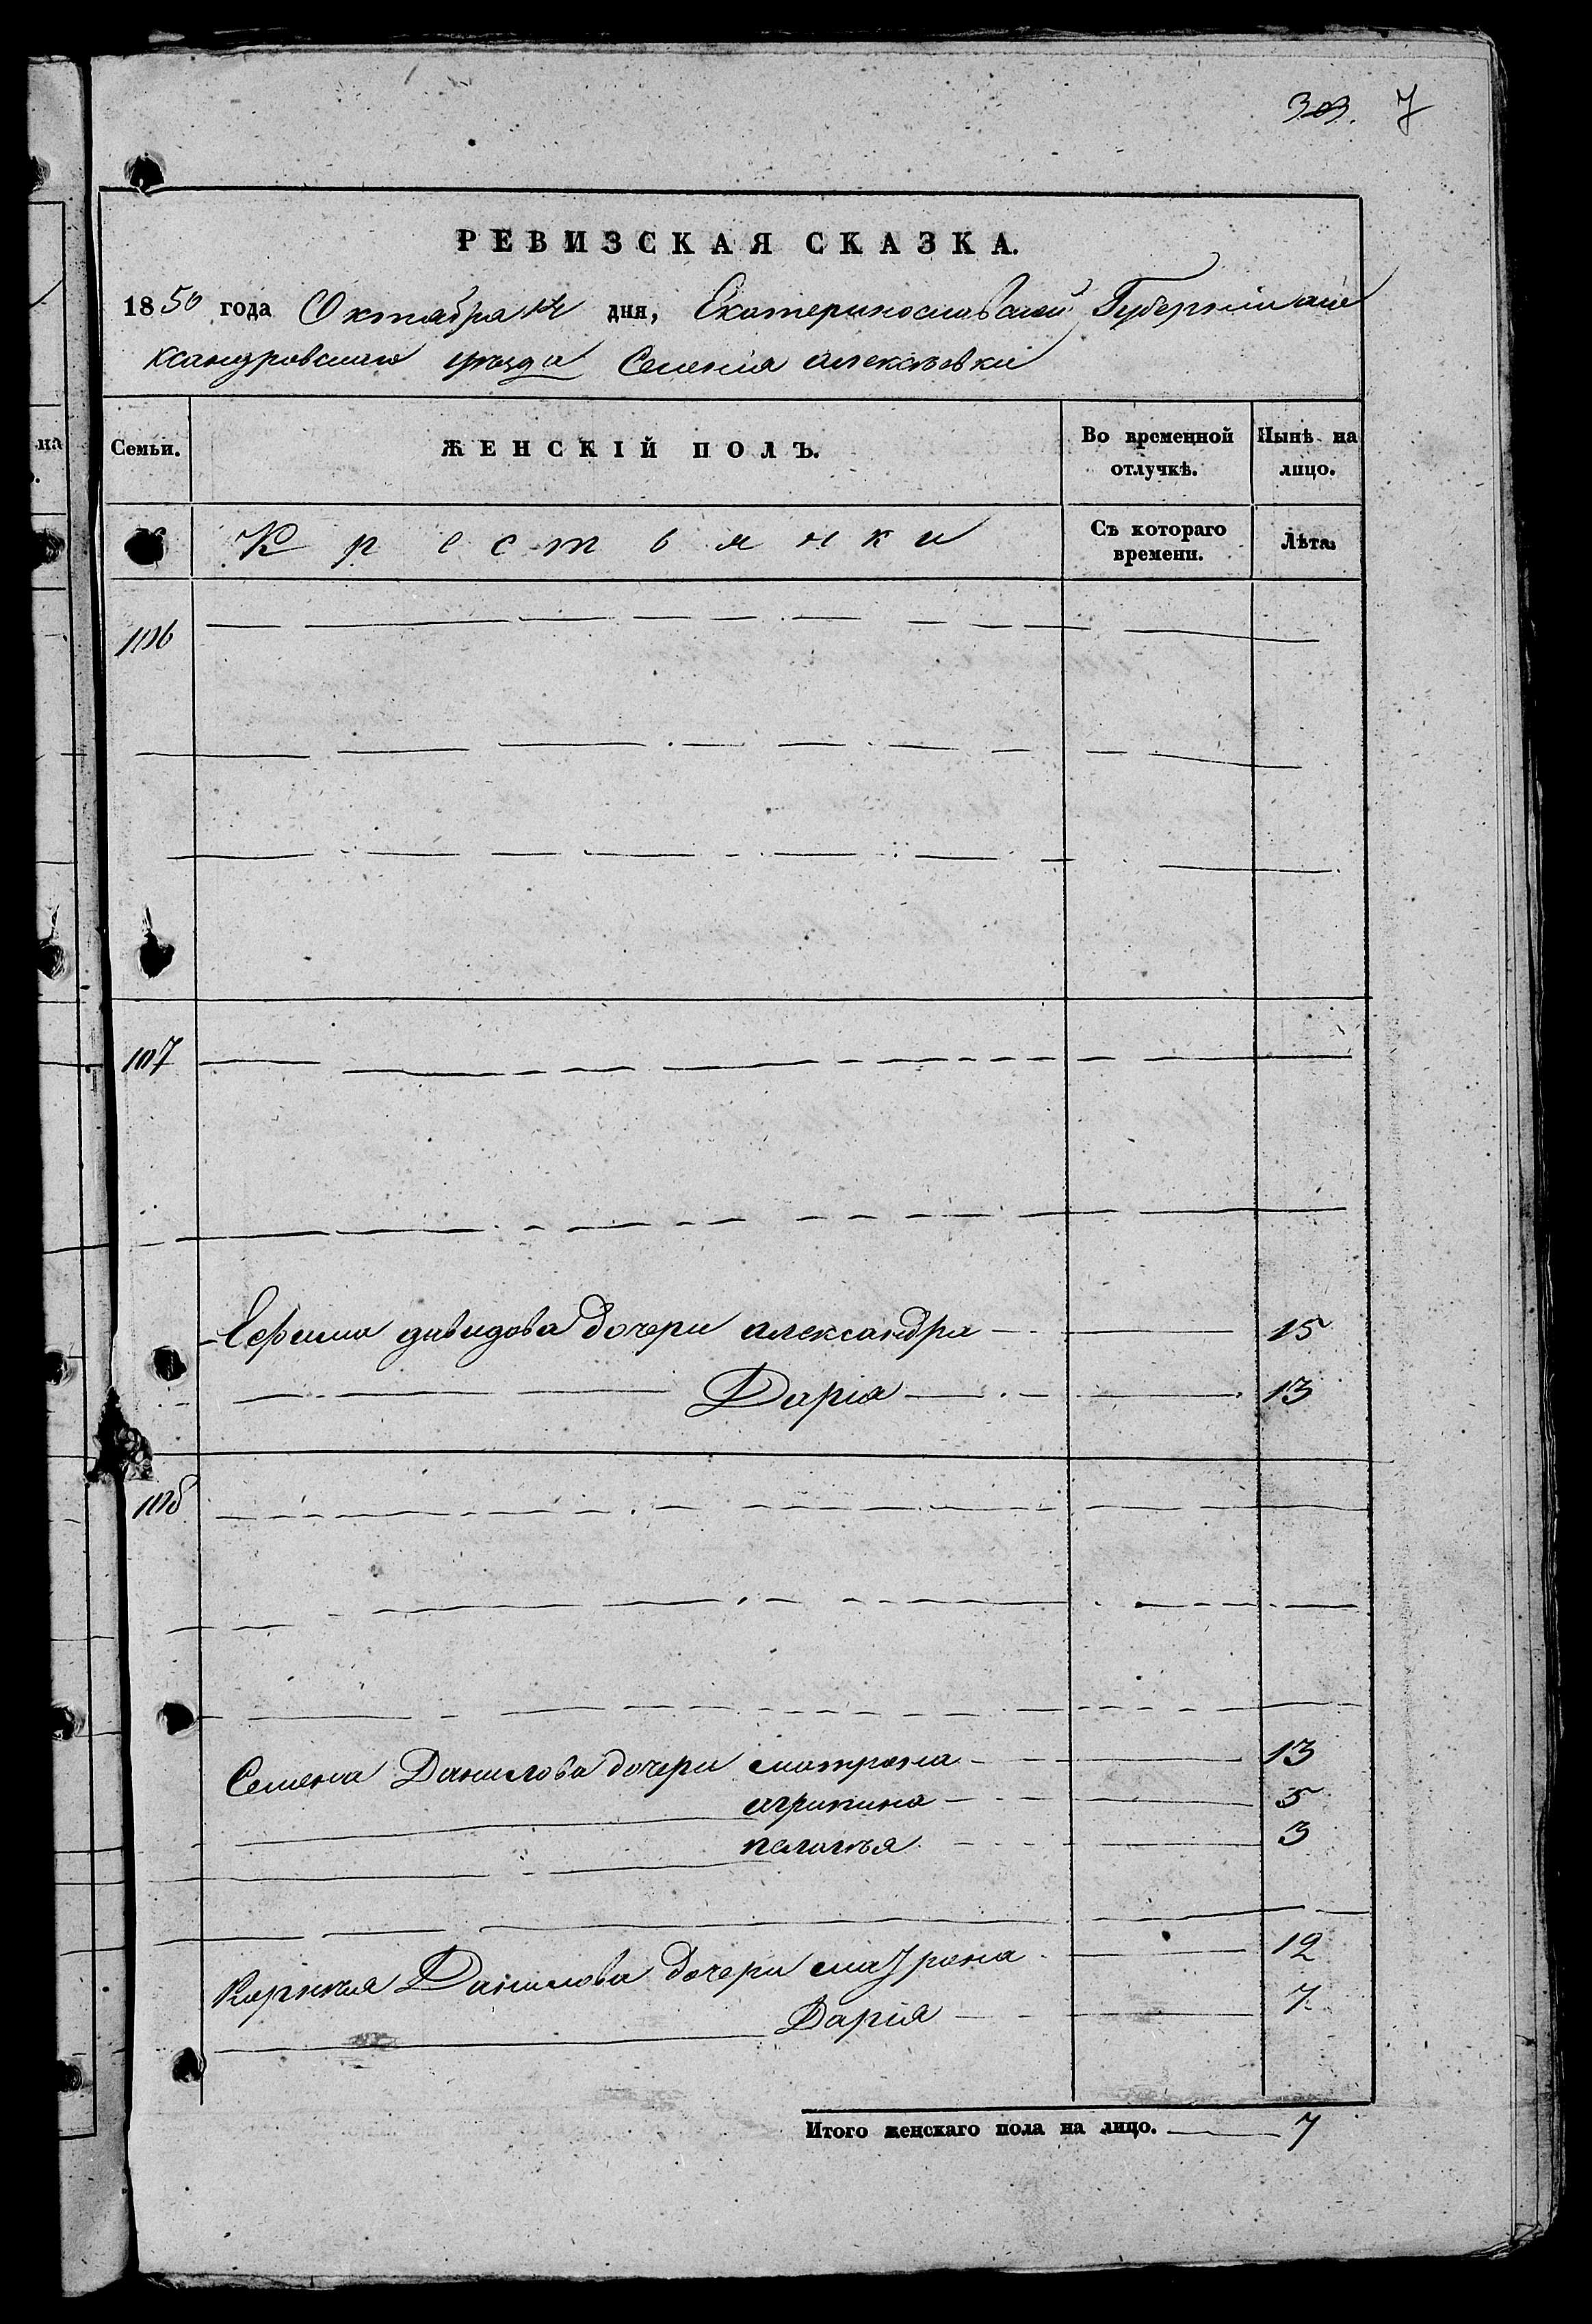 303. 7
РЕВИЗСКАЯ СКАЗКА.
1850 года Октября 14 дня, Екатеринославской Губернии але
ксандровскаго уезда Селения алексѣевки
на
Семьи. ЖЕНСКІЙ ПОЛЪ. Во временной отлучкѣ. Нынѣ на лицо.
Крестьянки Съ котораго времени. Лѣта.
106
107
Ефима давидова дочери александра 15
Дарія 13
108
Семена Данилова дочери матрена 13
агрипина 5
пелагѣя 3
Корнѣя Данилова дочери матрена 12
Дарія 7
Итого женскаго пола на лицо. 7